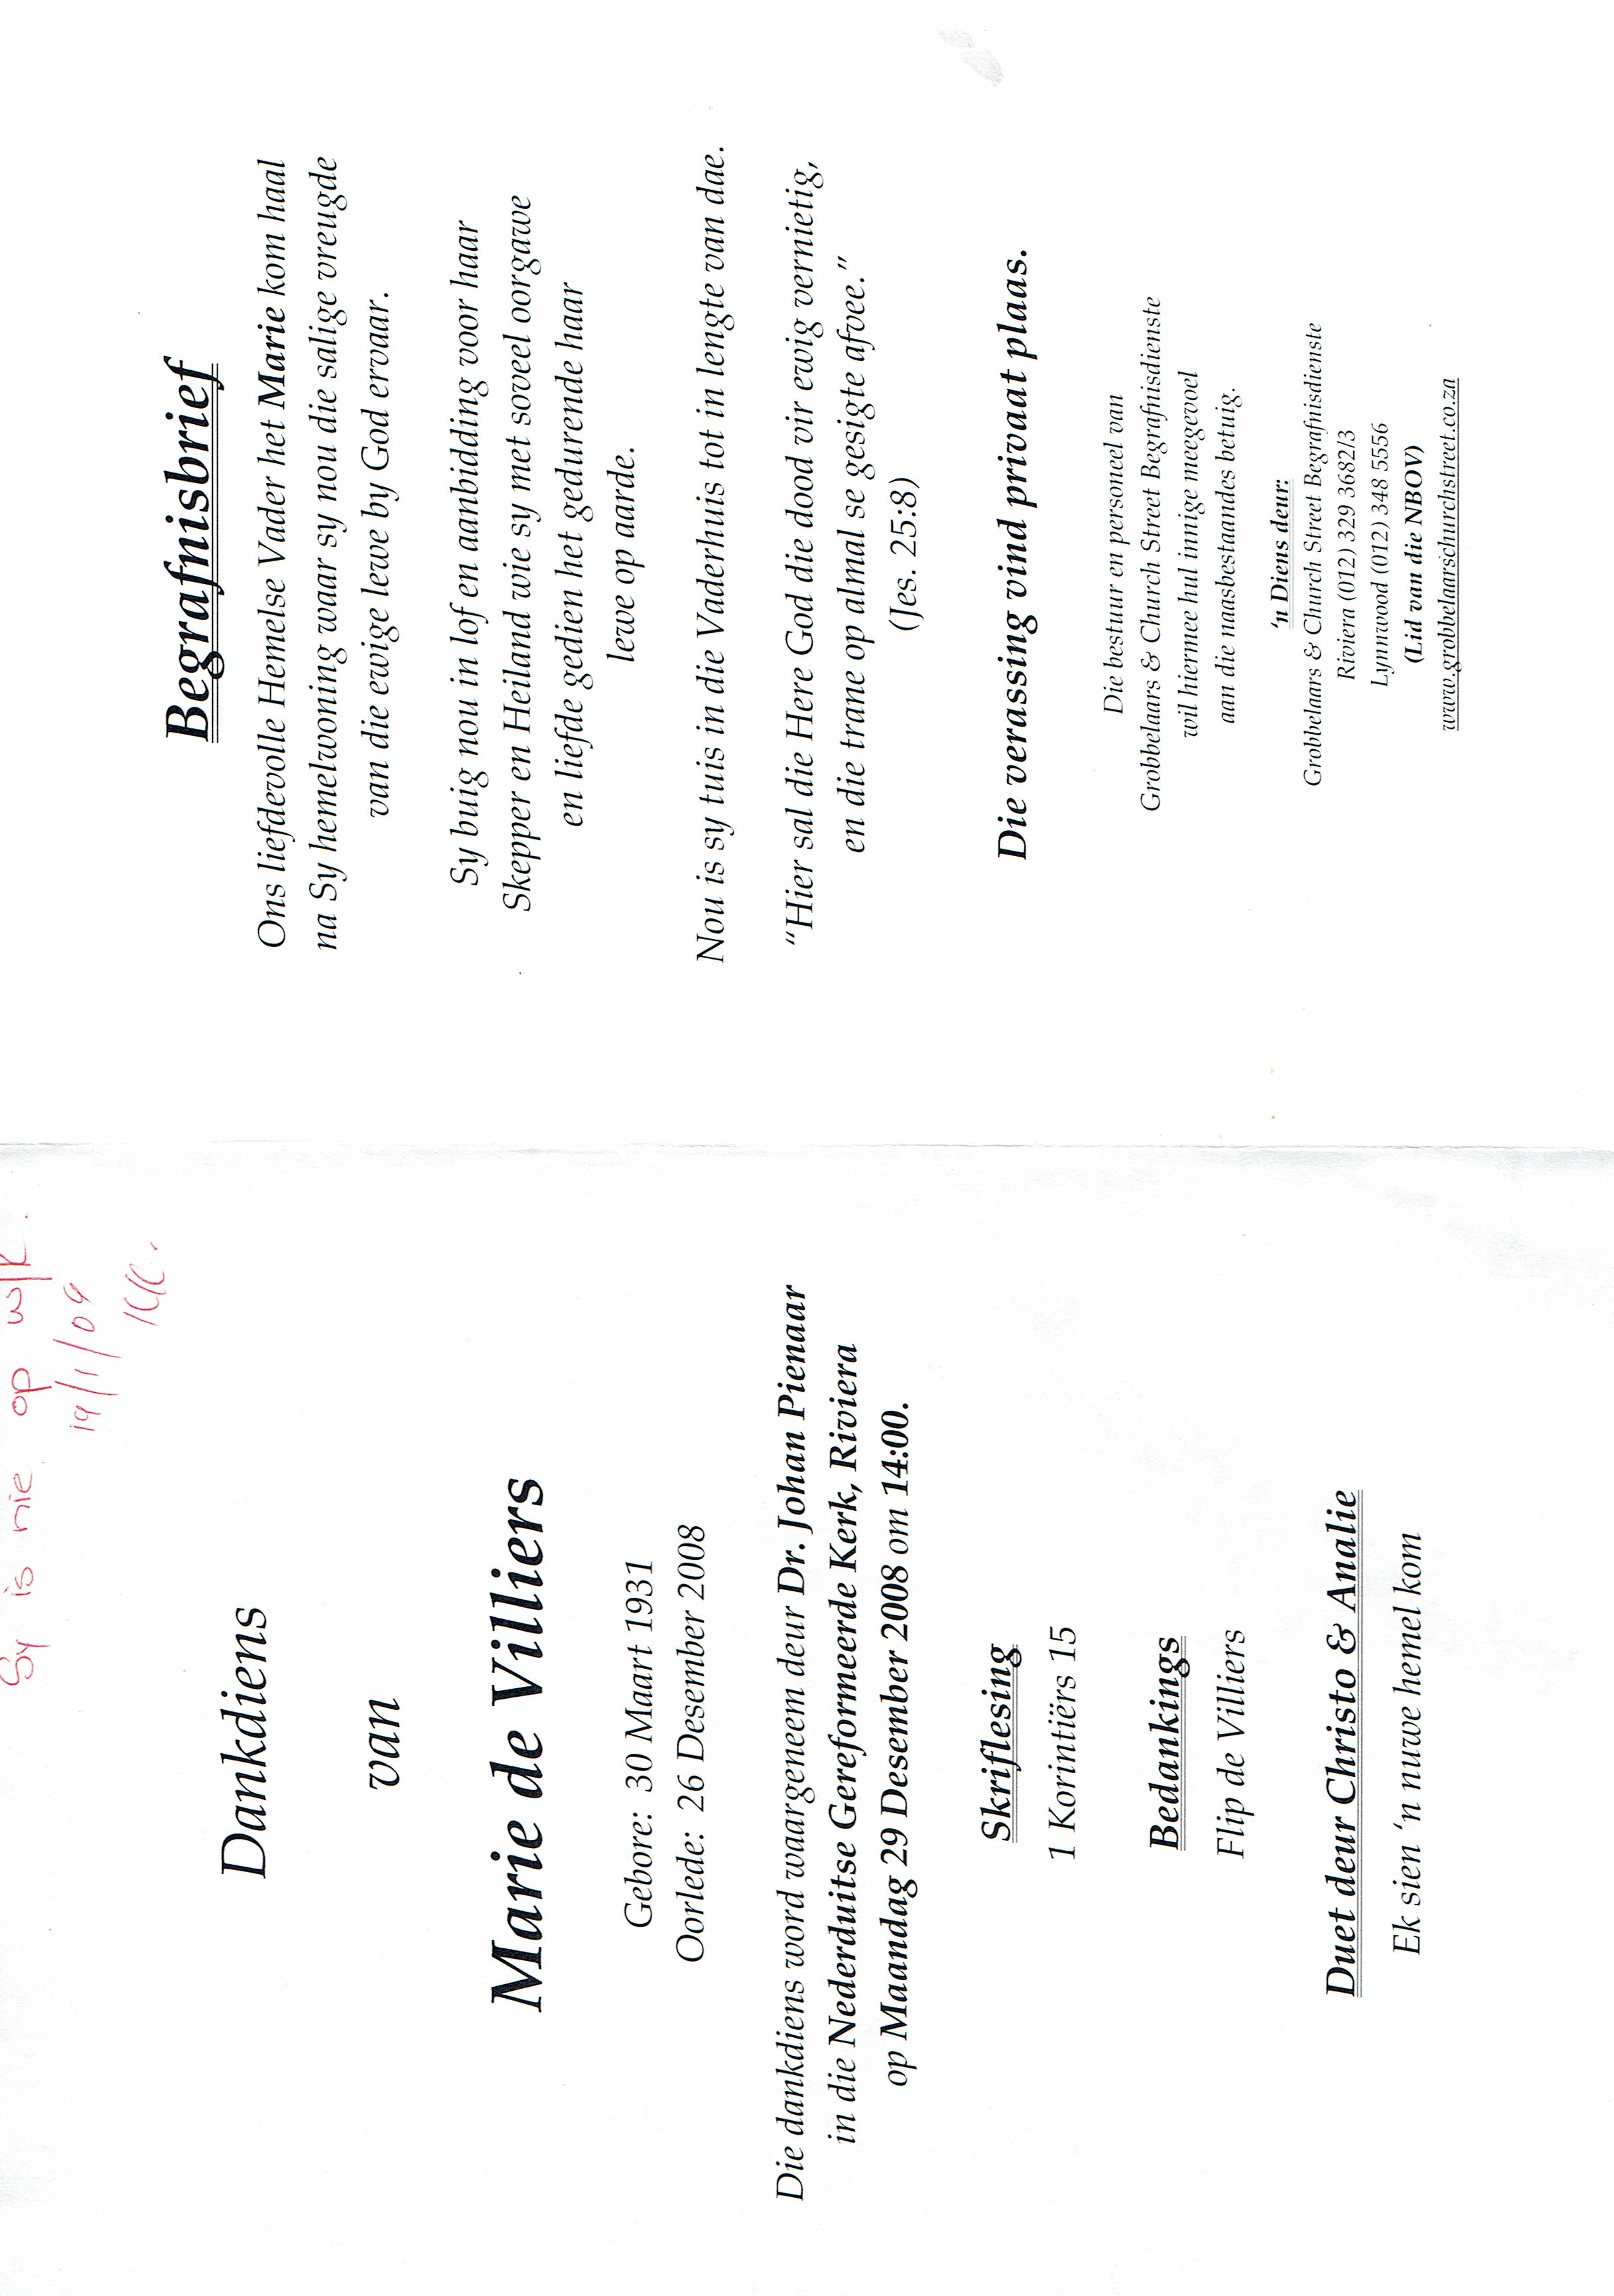 Sy is nie op w/k.
19/1/09
Dankdiens
van
Marie de Villiers
Gebore: 30 Maart 1931
Oorlede: 26 Desember 2008
Die dankdiens word waargeneem deur Dr. Johan Pienaar
in die Nederduitse Gereformeerde Kerk, Riviera
op Maandag 29 Desember 2008 om 14:00.
Skriflesing
1 Korintiërs 15
Bedankings
Flip de Villiers
Duet deur Christo & Analie
Ek sien ‘n nuwe hemel kom
Begrafnisbrief
Ons liefdevolle Hemelse Vader het Marie kom haal
na Sy hemelwoning waar sy nou die salige vreugde
van die ewige lewe by God ervaar.
Sy buig nou in lof en aanbidding voor haar
Skepper en Heiland wie sy met soveel oorgawe
en liefde gedien het gedurende haar
lewe op aarde.
Nou is sy tuis in die Vaderhuis tot in lengte van dae.
“Hier sal die Here God die dood vir ewig vernietig,
en die trane op almal se gesigte afvee.”
(Jes. 25:8)
Die verassing vind privaat plaas.
Die bestuur en personeel van
Grobbelaars & Church Street Begrafnisdienste
wil hiermee hul innige meegevoel
aan die naasbestandes betuig.
‘n Diens deur:
Grobbelaars & Church Street Begrafnisdienste
Riviera (012) 329 3682/3
Lynnwood (012) 348 5556
(Lid van die NBOV)
www.grobbelaarschurchstreet.co.za